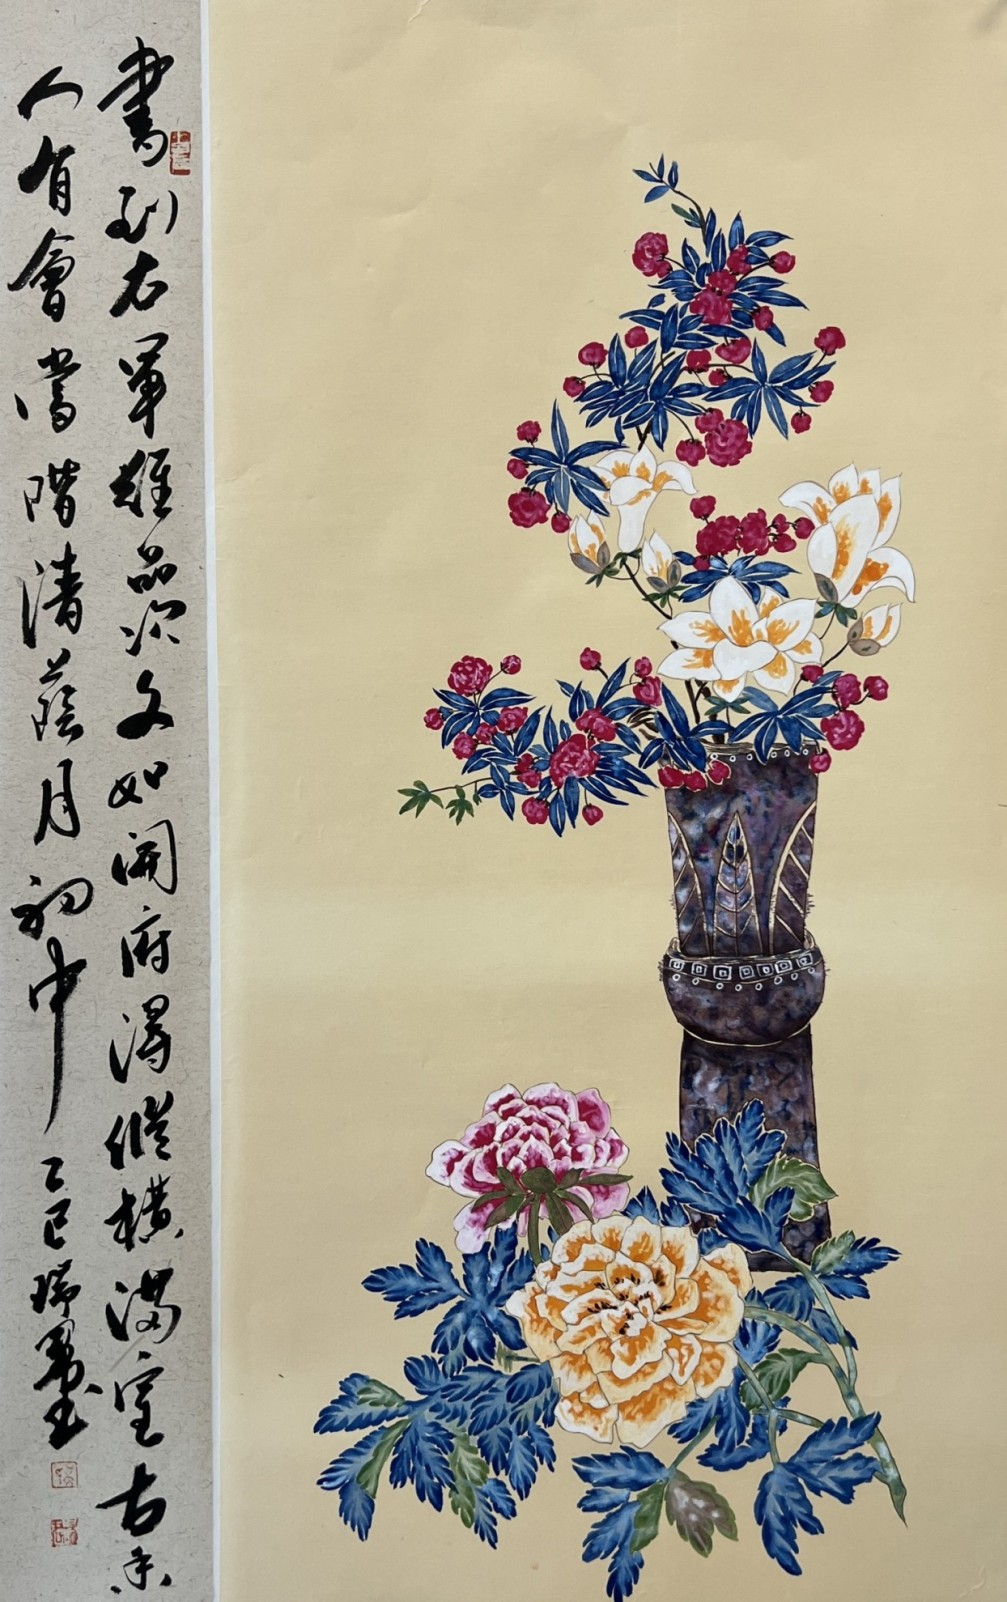 書到右軍難品次文如開府得縱橫滿室古香
人有會當階清蔭月初中
乙巳瑞